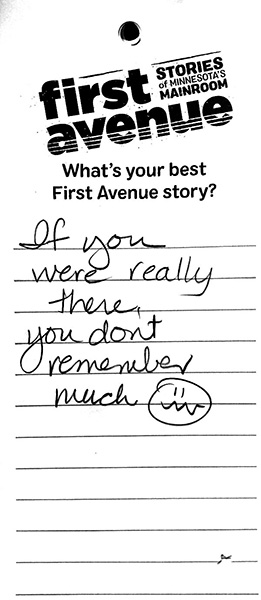 first
avenue
STORIES
of MINNESOTA'S
MAINROOM
What's your best
First Avenue story?
If you
were really
there,
you dont
remember
much